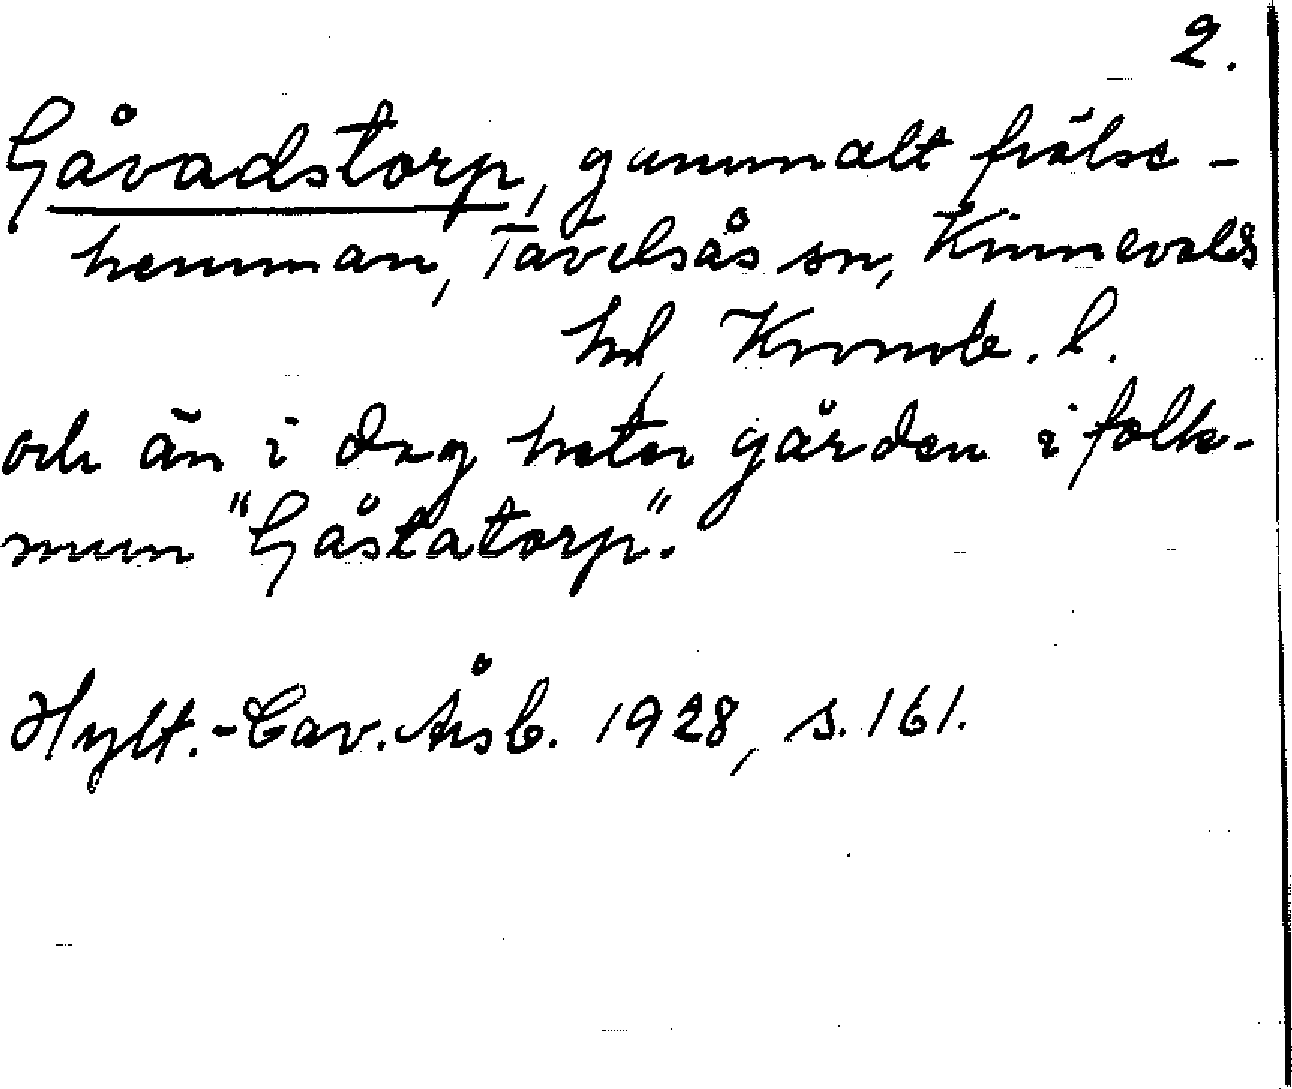 2.
Gåvadstorp, gammalt frälse-
hemman, Tävelsås sn, Kinnevalds
hd, Kronob. l.
och än i dag heter gården i folk-
mun "Gåstatorp".
Hylt.-Cav. Årsb. 1928, s. 161.